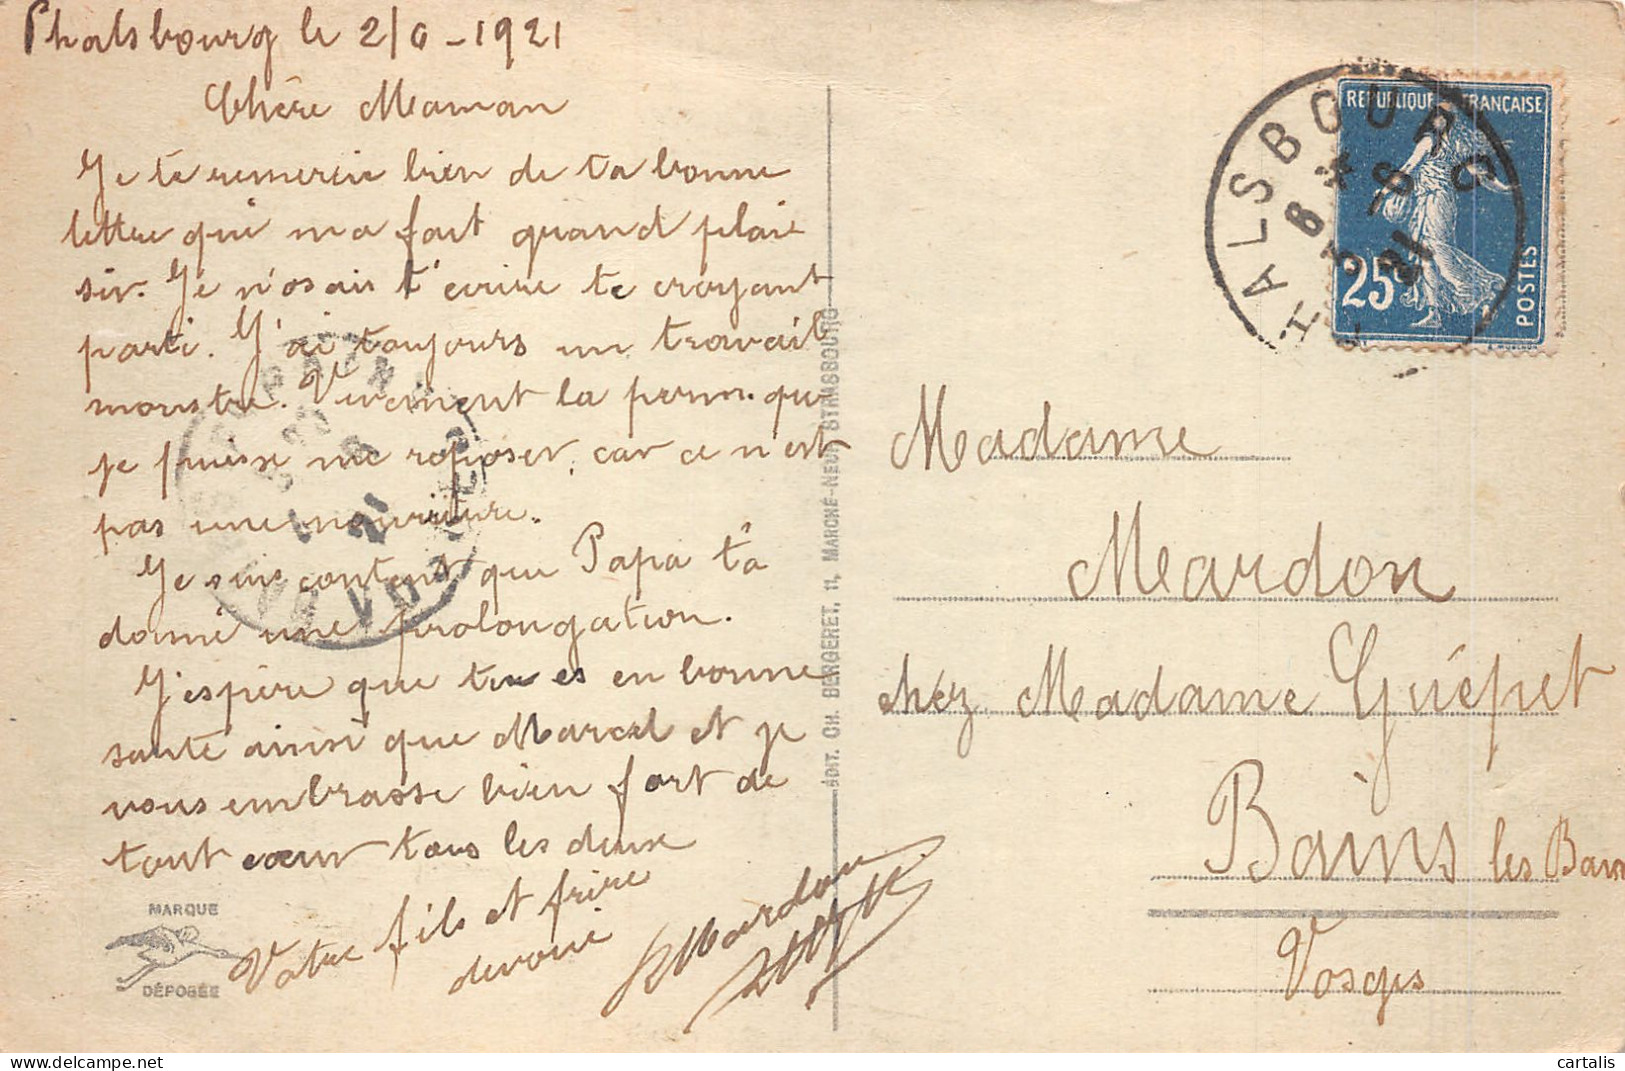 Phalsbourg le 2/6-1921
Chère Maman
Je te remercie bien de ta bonne
lettre qui ma fait grand plaisir
sir. Je n'osais t'écrire te croyant
parti. J'ai toujours un travail
monstre. Vivement la perm. que
je puisse me reposer, car ce n'est
pas une nourriture.
Je suis content que Papa t'à
donné une prolongation.
J'espère que tu es en bonne
santé ainsi que Marcel et je
vous embrasse bien fort de
tout cœur tous les deux
Votre fils et frère
dévoué Mardon
MARQUE
DÉPOSÉE
ÉDIT. CH. BERGERET, 11, MARCHÉ-NEUF STRASBOURG
PHALSBOURG
8
6
21
REPUBLIQUE FRANÇAISE
25c
POSTES
Madame
Mardon
chéz Madame Guépet
Bains les Bains
Vosges
cartalis